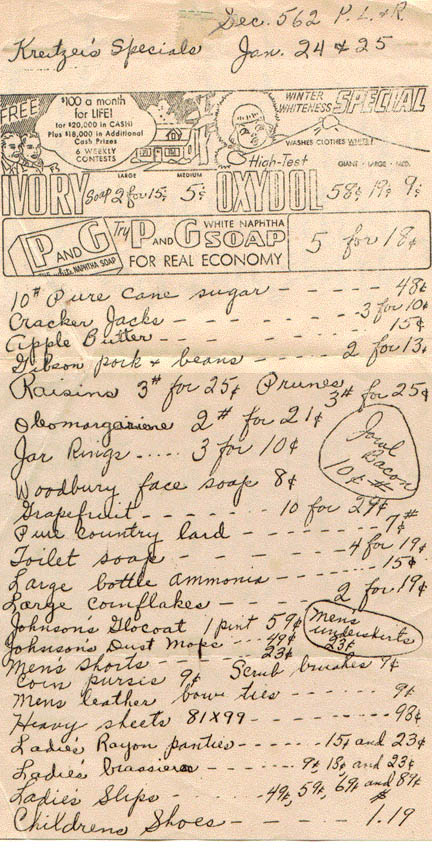 Sec. 562 P. L. & R.
Kreitzer's Specials Jan. 24 & 25
FREE
$100 a month
for LIFE!
for $20,000 in CASH!
Plus $18,000 in Additional
Cash Prizes
6 WEEKLY
CONTESTS
WINTER
WHITENESS SPECIAL
WASHES CLOTHES WHITE!
LARGE MEDIUM
High-Test GIANT - LARGE - MED.
IVORY Soap 2 for 15¢ 5¢ OXYDOL 58¢ 19¢ 9¢
P AND G
The White NAPHTHA SOAP
Try P AND G WHITE NAPHTHA SOAP
FOR REAL ECONOMY
5 for 18¢
10# Pure cane sugar - - - - - 48¢
Cracker Jacks - - - - - 3 for 10¢
Apple Butter - - - - - 15¢
Gibson pork & beans - - - - 2 for 13¢
Raisins 3# for 25¢ Prunes 3# for 25¢
Oleomargariene 2# for 21¢
Jar Rings ..... 3 for 10¢
Jowl
Bacon
10¢ #
Woodbury face soap 8¢
Grapefruit - - - - - 10 for 29¢
Pure country lard - - - - - 7¢ #
Toilet soap - - - - - 4 for 19¢
Large bottle ammonia - - - - 15¢
Large cornflakes - - - - - 2 for 19¢
Johnson's Glocoat 1 pint 59¢
Johnson's Dust Mops - - - 49¢
Mens
underskirts
23¢
Men's shorts - - - - - 23¢
Coin pursis 9¢ Scrub brushes 9¢
Mens leather bow ties - - - - 9¢
Heavy sheets 81x99 - - - - - 93¢
Ladie's Rayon panties - - - - 15¢ and 23¢
Ladie's brassiere - - - - 9¢, 15¢ and 23¢
Ladie's Slips - - - - 49¢, 59¢, 69¢ and 89¢
Childrens Shoes - - - - - $1.19